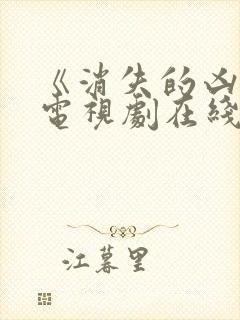 《消失的凶
電視劇在綫
江暮里